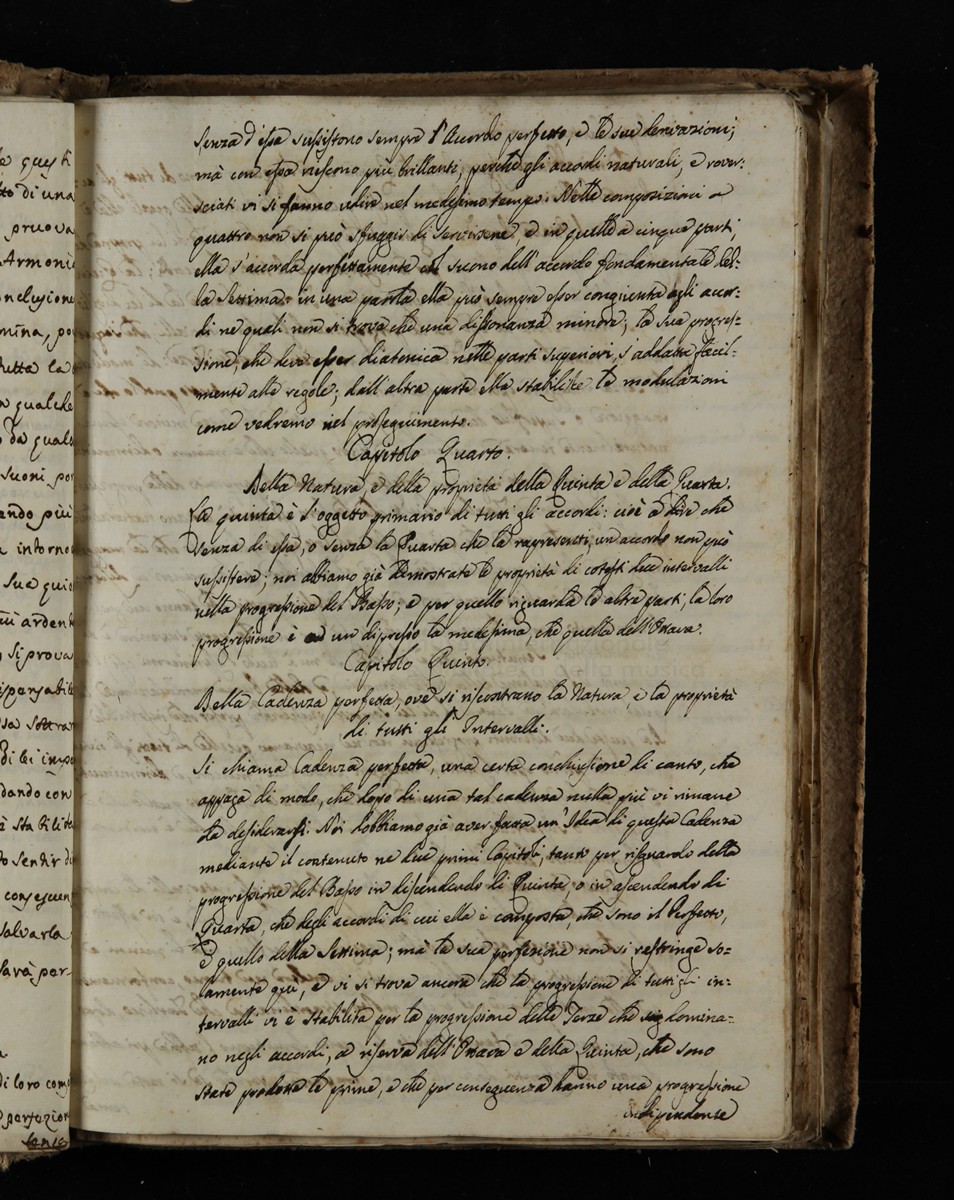 senza d'essa sussistono sempre l'Accordo perfetto, e le sue derivazioni;
mà con essa riescono più brillanti, perchè gli accordi naturali, e rover-
sciati vi si fanno udire nel medesimo tempo. Nelle composizioni a
quattro non si può sfuggir di servirsene, e in quelle a cinque parti,
ella s'accorda perfettamente col suono dell'accordo fondamentale del-
la Settima: in una parola ella può sempre esser congiunta agli accor-
di ne quali non si trova che una dissonanza minore; la sua progres-
sione, che deve esser diatonica nelle parti superiori, s'adatta facil-
mente alle regole; dall'altra parte ella stabilisce le modulazioni
come vedremo nel proseguimento.
Capitolo Quarto.
Della Natura, e della proprietà della Quinta e della Quarta.
La quinta è l'oggetto primario di tutti gli accordi: cioè a dire che
senza di essa, o senza la Quarta che la rapresenti, un accordo non può
sussistere; noi abbiamo già dimostrate le proprietà di cotesti due intervalli
nella progressione del Basso; e per quello riguarda le altre parti, la loro
progressione è ad un dipresso la medesima, che quella dell'Ottava.
Capitolo Quinto.
Della Cadenza perfetta, ove si riscontrano la Natura, e la proprietà
di tutti gli Intervalli.
Si chiama Cadenza perfetta, una certa conchiusione di canto, che
appaga di modo, che dopo di una tal cadenza nulla più vi rimane
da desiderarsi. Noi dobbiamo già aver fatta un'Idea di questa Cadenza
mediante il contenuto ne due primi Capitoli, tanto per risguardo della
progressione del Basso in discendendo di Quinta, o in ascendendo di
Quarta, che degli accordi di cui ella è composta, che sono il Perfetto,
e quello della Settima; mà la sua perfezione non si restringe so-
lamente quì, e vi si trova ancora che la progressione di tutti gli in-
tervalli vi è stabilita per la progressione delle Terze che domina-
no negli accordi, a riserva dell'Ottava e della Quinta, che sono
state prodotte le prime, e che per conseguenza hanno una progressione
indipendente